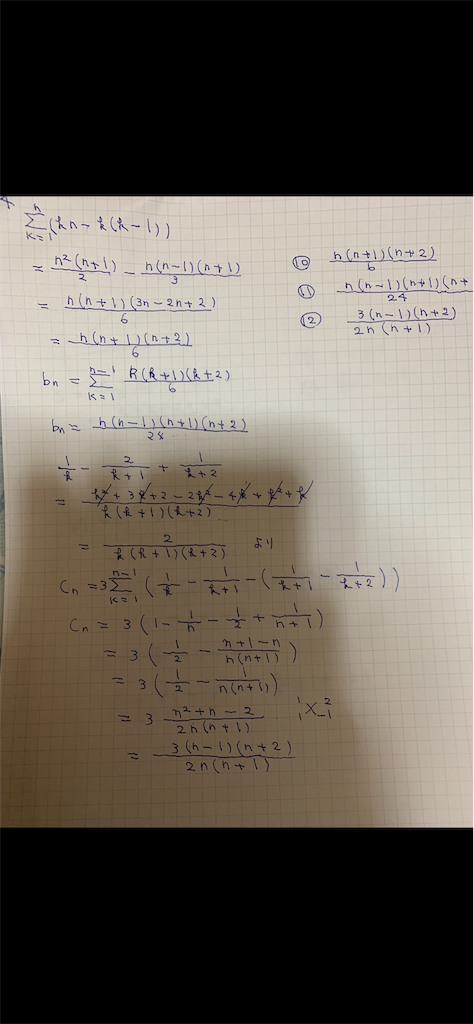 n
Σ (kn - k(k-1))
k=1
= n²(n+1)/2 - n(n-1)(n+1)/3
= n(n+1)(3n-2n+2)/6
= n(n+1)(n+2)/6
bn = Σ_{k=1}^{n-1} k(k+1)(k+2)/6
bn = n(n-1)(n+1)(n+2)/24
1/k - 2/(k+1) + 1/(k+2)
= (k²+3k+2-2k²-4k+k²+k)/(k(k+1)(k+2))
= 2/(k(k+1)(k+2)) より
Cn = 3 Σ_{k=1}^{n-1} (1/k - 1/(k+1) - (1/(k+1) - 1/(k+2)))
Cn = 3(1 - 1/n - 1/2 + 1/(n+1))
= 3(1/2 - (n+1-n)/(n(n+1)))
= 3(1/2 - 1/(n(n+1)))
= 3 (n²+n-2)/(2n(n+1))
1 2
1 X -1
= 3(n-1)(n+2)/(2n(n+1))
⑩ n(n+1)(n+2)/6
⑪ n(n-1)(n+1)(n+/24
⑫ 3(n-1)(n+2)/(2n(n+1))